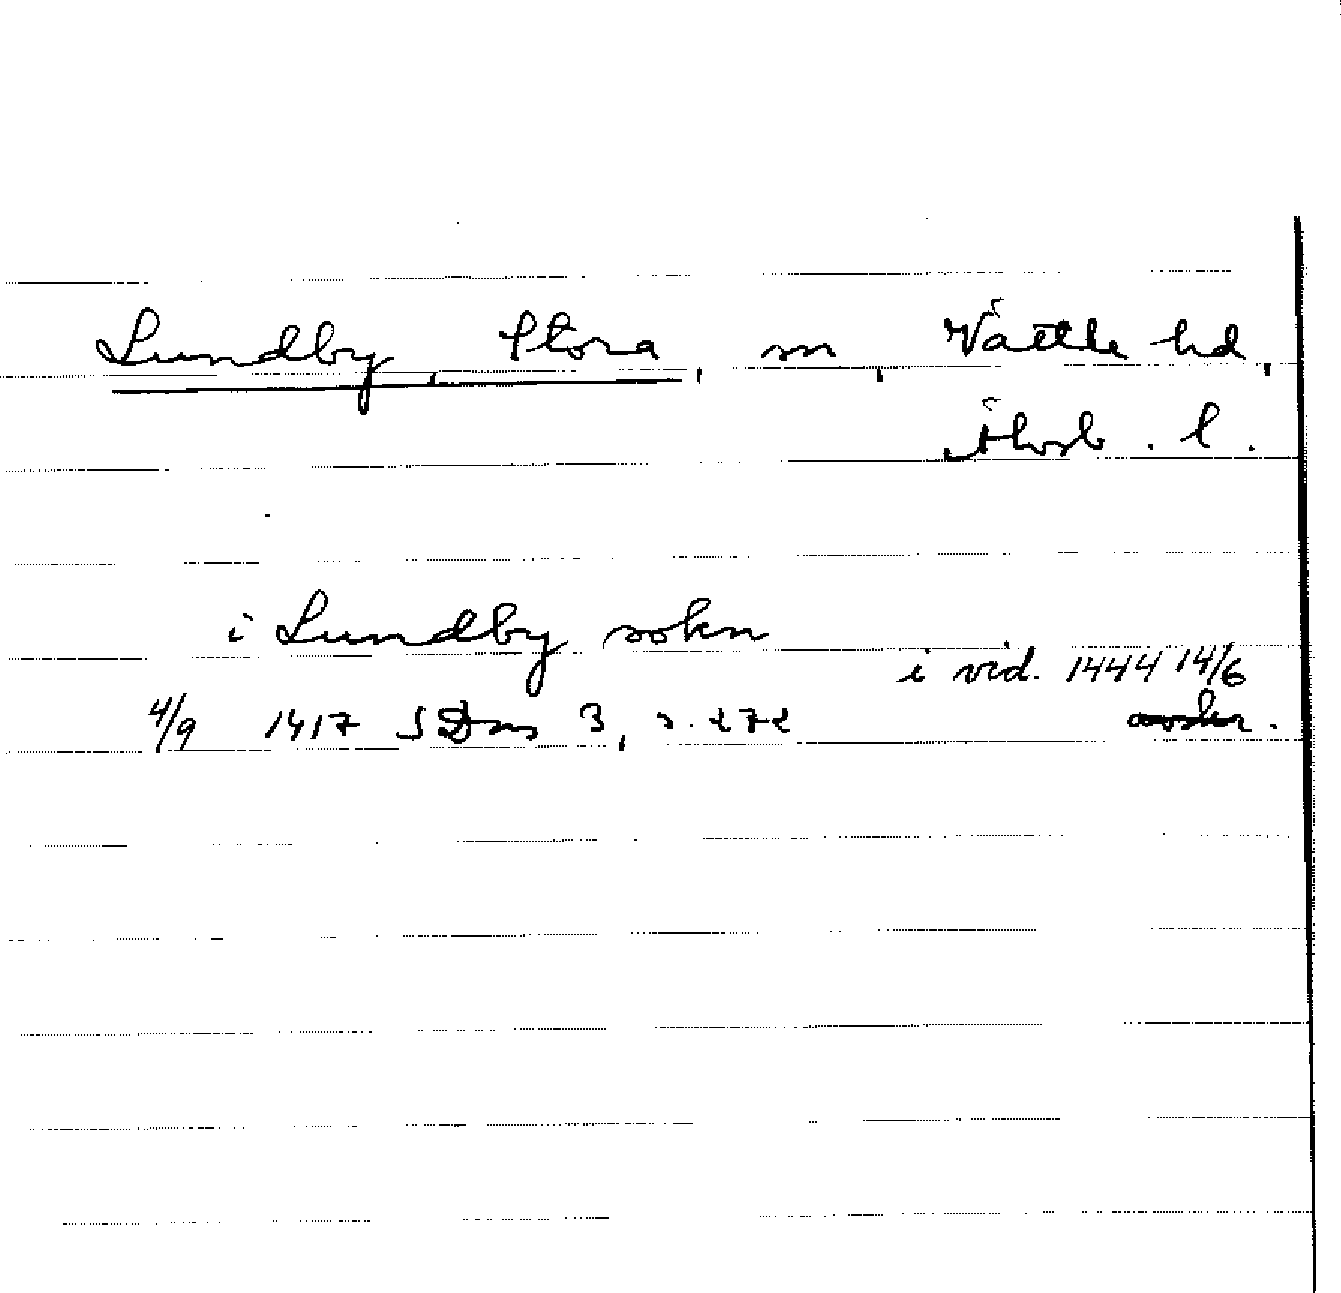 Lundby, Stora, sn, Vättle hd,
Älvsb. l.
i Lundby sokn
i vid. 1444 14/6
4/9 1417 SDns 3, s. 272 avskr.